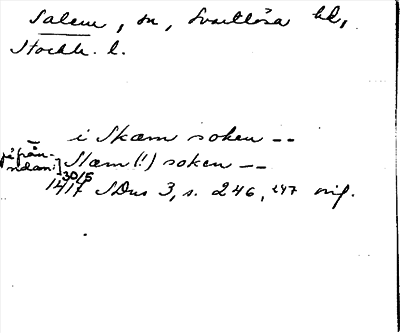 Salem, sn, Svartlösa hd,
Stockh. l.
i Skæm soken --
på från-
sidan: Slæm (!) soken --
30/5
1417 SDns 3, s. 246, 247 orig.